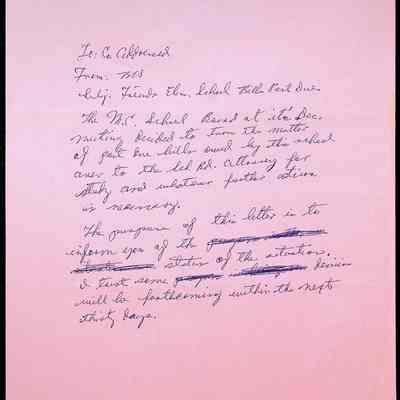 To: Co Addressed
From: MS
Subj: Friends Elm. School Bills Past Due
The M.C. School Board at it's Dec.
meeting decided to turn the matter
of past due bills owed by the school
over to the Sch Bd. Attorney for
study and whatever further action
is necessary.
The purpose of this letter is to
inform you of the
status of the situation.
I trust some decision
will be forthcoming within the next
thirty days.